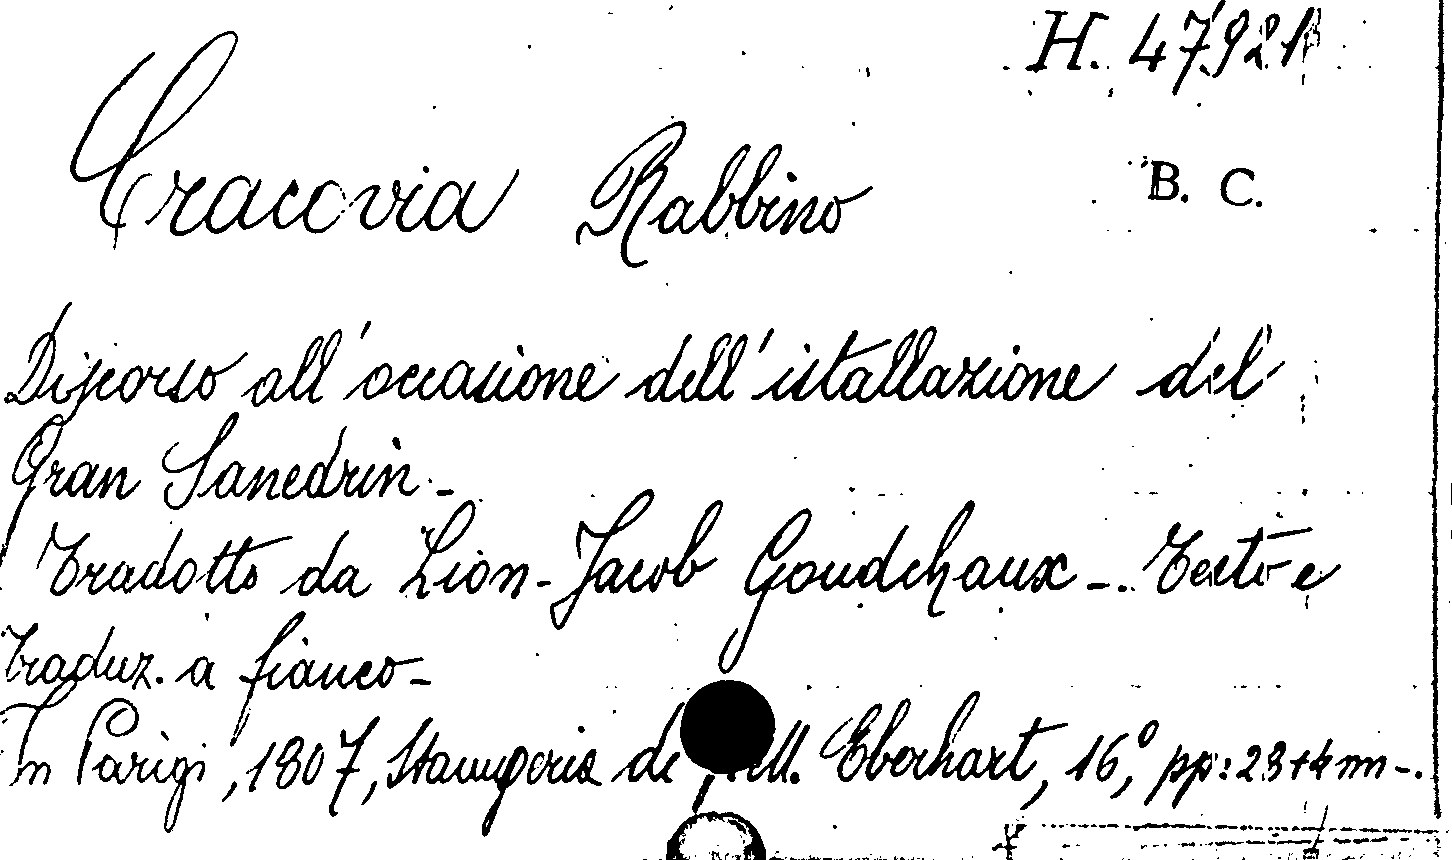 H. 47921
Cracovia Rabbino
B. C.
Discorso all'occasione dell'istallazione del
Gran Sanedrin -
Tradotto da Lion-Jacob Goudchaux -. Testo e
traduz. a fianco -
In Parigi, 1807, Stamperia di M. Eberhart, 16º, pp: 23+4 nn -.